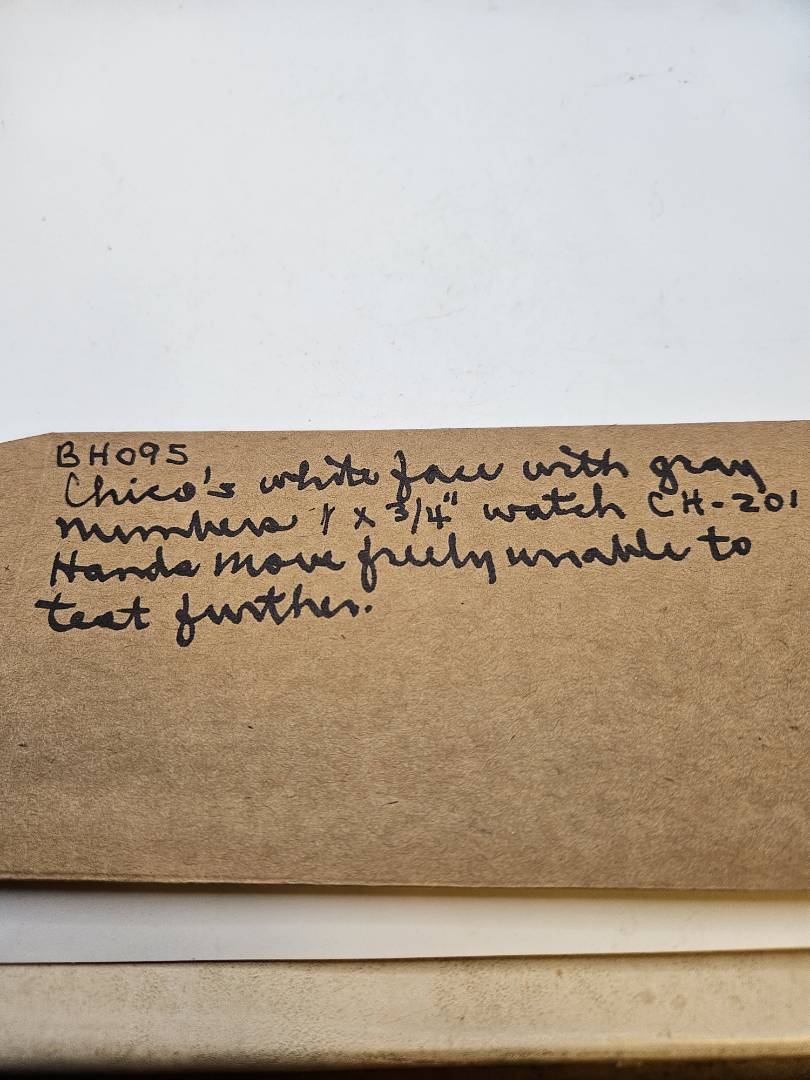 BH095
Chico's white face with gray
numbers 1 x 3/4" watch CH-201
Hands move freely unable to
test further.